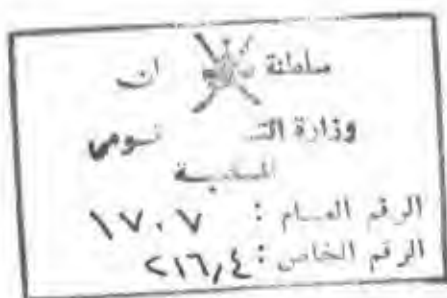 سلطنة ان
وزارة التـ ـومى
المكتبة
الرقم العام : ١٧٠٧
الرقم الخاص : ٢١٦,٤